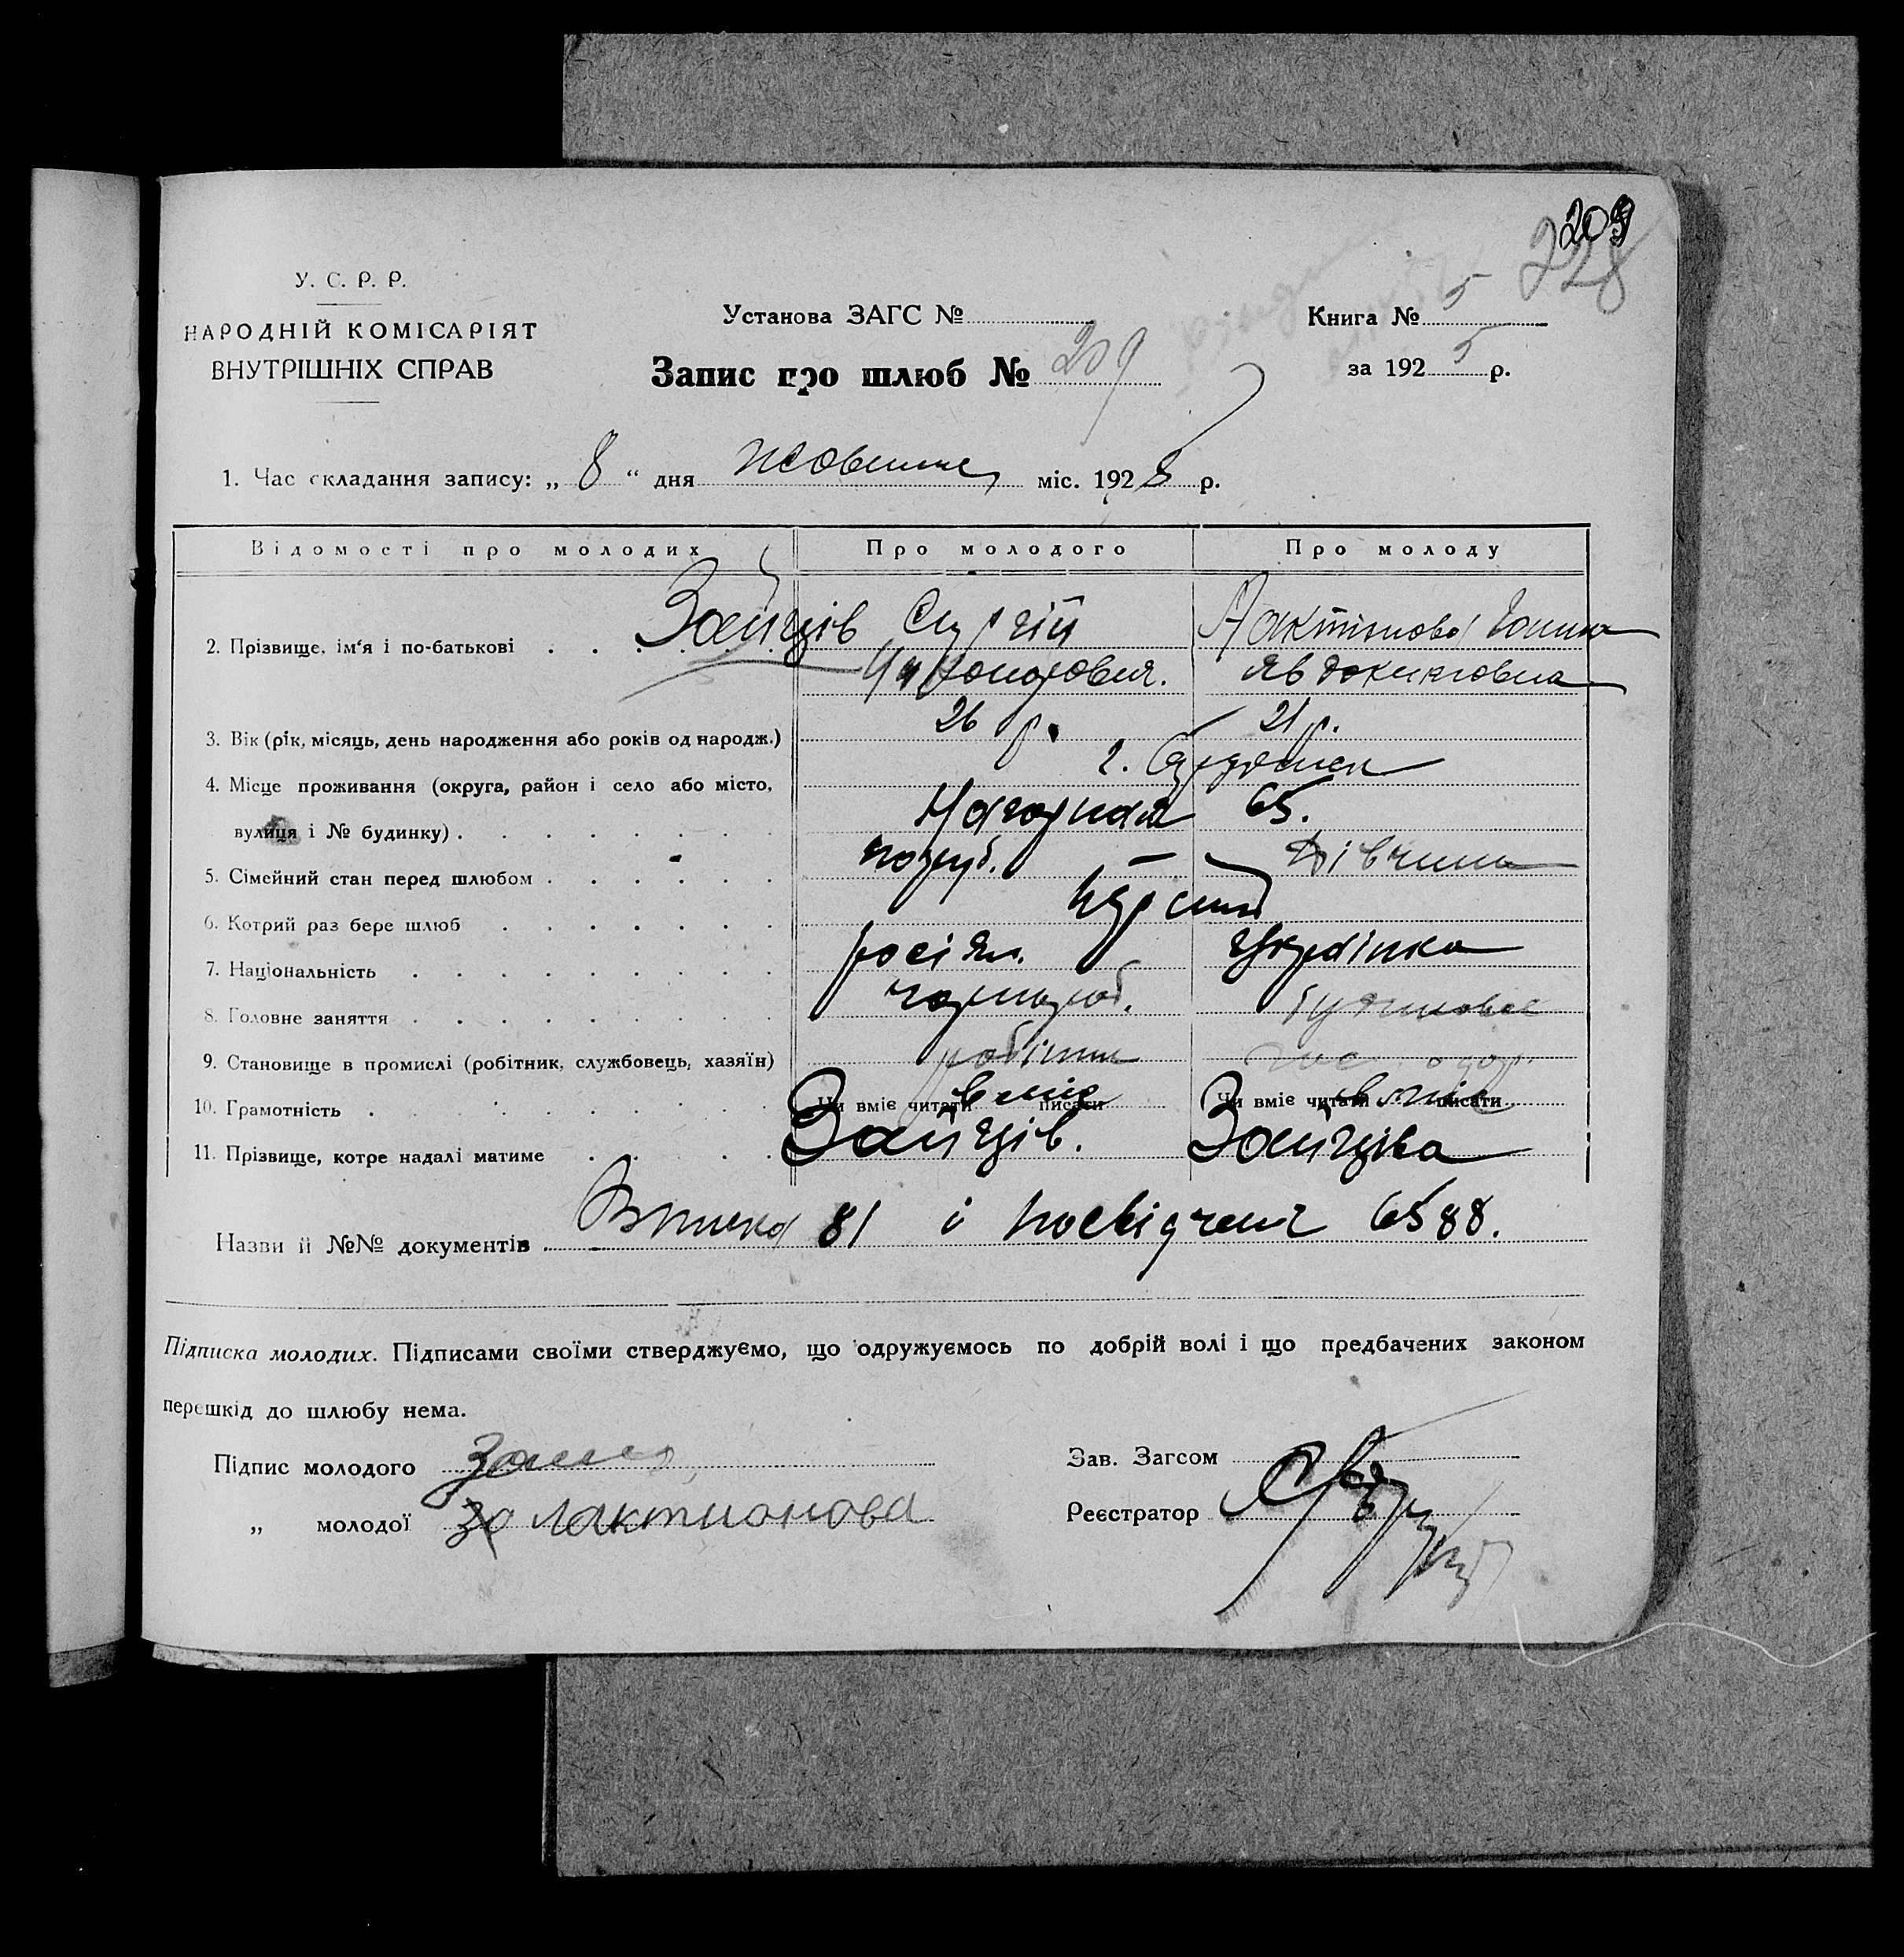 209
228
У. С. Р. Р.
НАРОДНІЙ КОМІСАРІЯТ
ВНУТРІШНІХ СПРАВ
Установа ЗАГС №
Книга № 5
за 192 5 р.
Запис про шлюб № 209
1. Час складання запису: „ 8 “ дня міс. 192 8 р.
Відомості про молодих Про молодого Про молоду
2. Прізвище, ім‘я і по-батькові Зайців Сергій
Явдокимовна
3. Вік (рік, місяць, день народження або років од народж.) 26 р. 21 р.
4. Місце проживання (округа, район і село або місто,
вулиця і № будинку) Нагорная 65.
5. Сімейний стан перед шлюбом дівчина
6. Котрий раз бере шлюб
7. Національність росіян. Українка
8. Головне заняття чорнороб.
9. Становище в промислі (робітник, службовець, хазяїн) робітник
10. Грамотність Чи вміє читати вміє писати Чи вміє читати вміє писати
11. Прізвище, котре надалі матиме Зайців. Зайціва
Назви й №№ документів 81 і посвідчен 6588.
Підписка молодих. Підписами своїми стверджуємо, що одружуємось по добрій волі і що предбачених законом
перешкід до шлюбу нема.
Підпис молодого
„ молодої За Лактионова
Зав. Загсом
Реєстратор